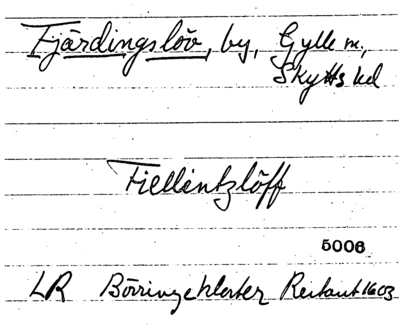 Fjärdingslöv, by, Gylle sn,
Skytts hd
Fiellentzlöff
5006
LR Börringekloster Restant 1603